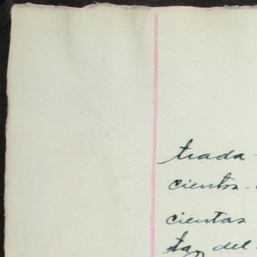 trada
cientos
cientas
ta, del